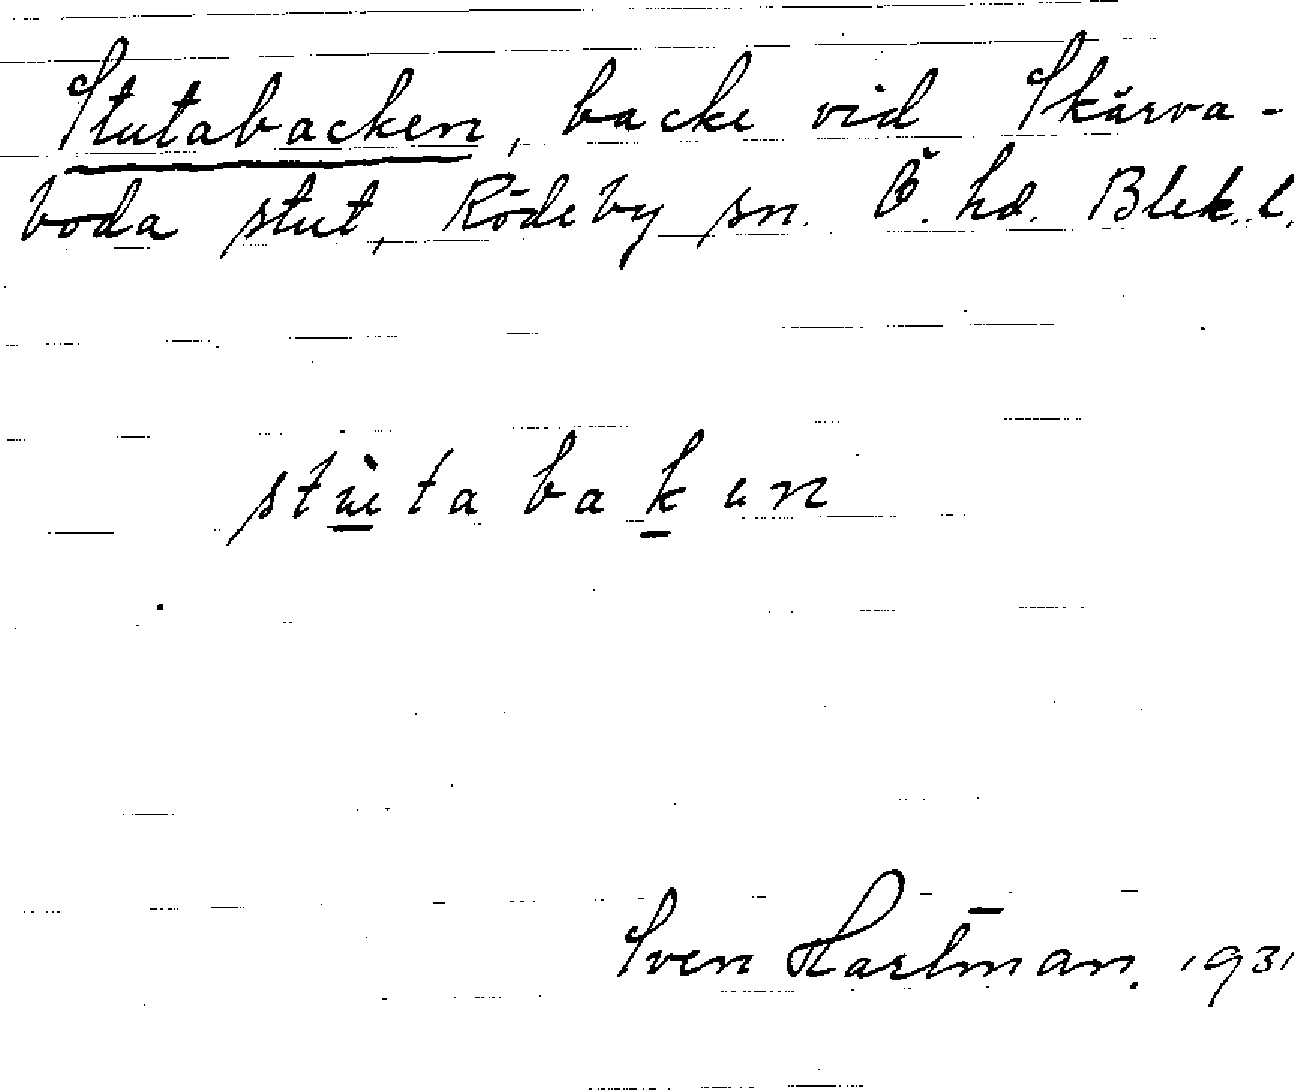 Stutabacken, backe vid Skärva-
boda stut, Rödeby sn. Ö. hd. Blek. l.
stùtabaken
Sven Hartman. 1931